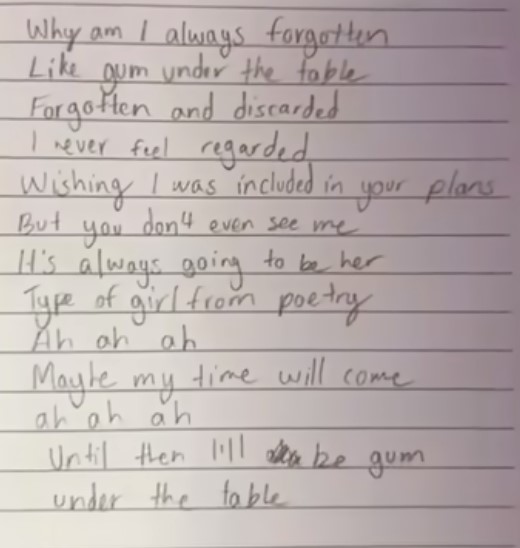 Why am I always forgotten
Like gum under the table
Forgotten and discarded
I never feel regarded
Wishing I was included in your plans
But you don't even see me
It's always going to be her
Type of girl from poetry
Ah ah ah
Maybe my time will come
ah ah ah
Until then I'll be gum
under the table